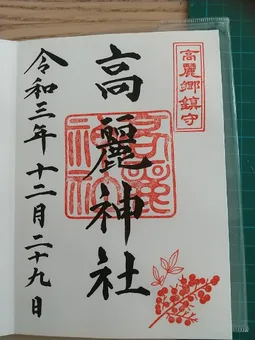 高麗郷鎮守
高麗神社
令和三年十二月二十九日
高麗
神社